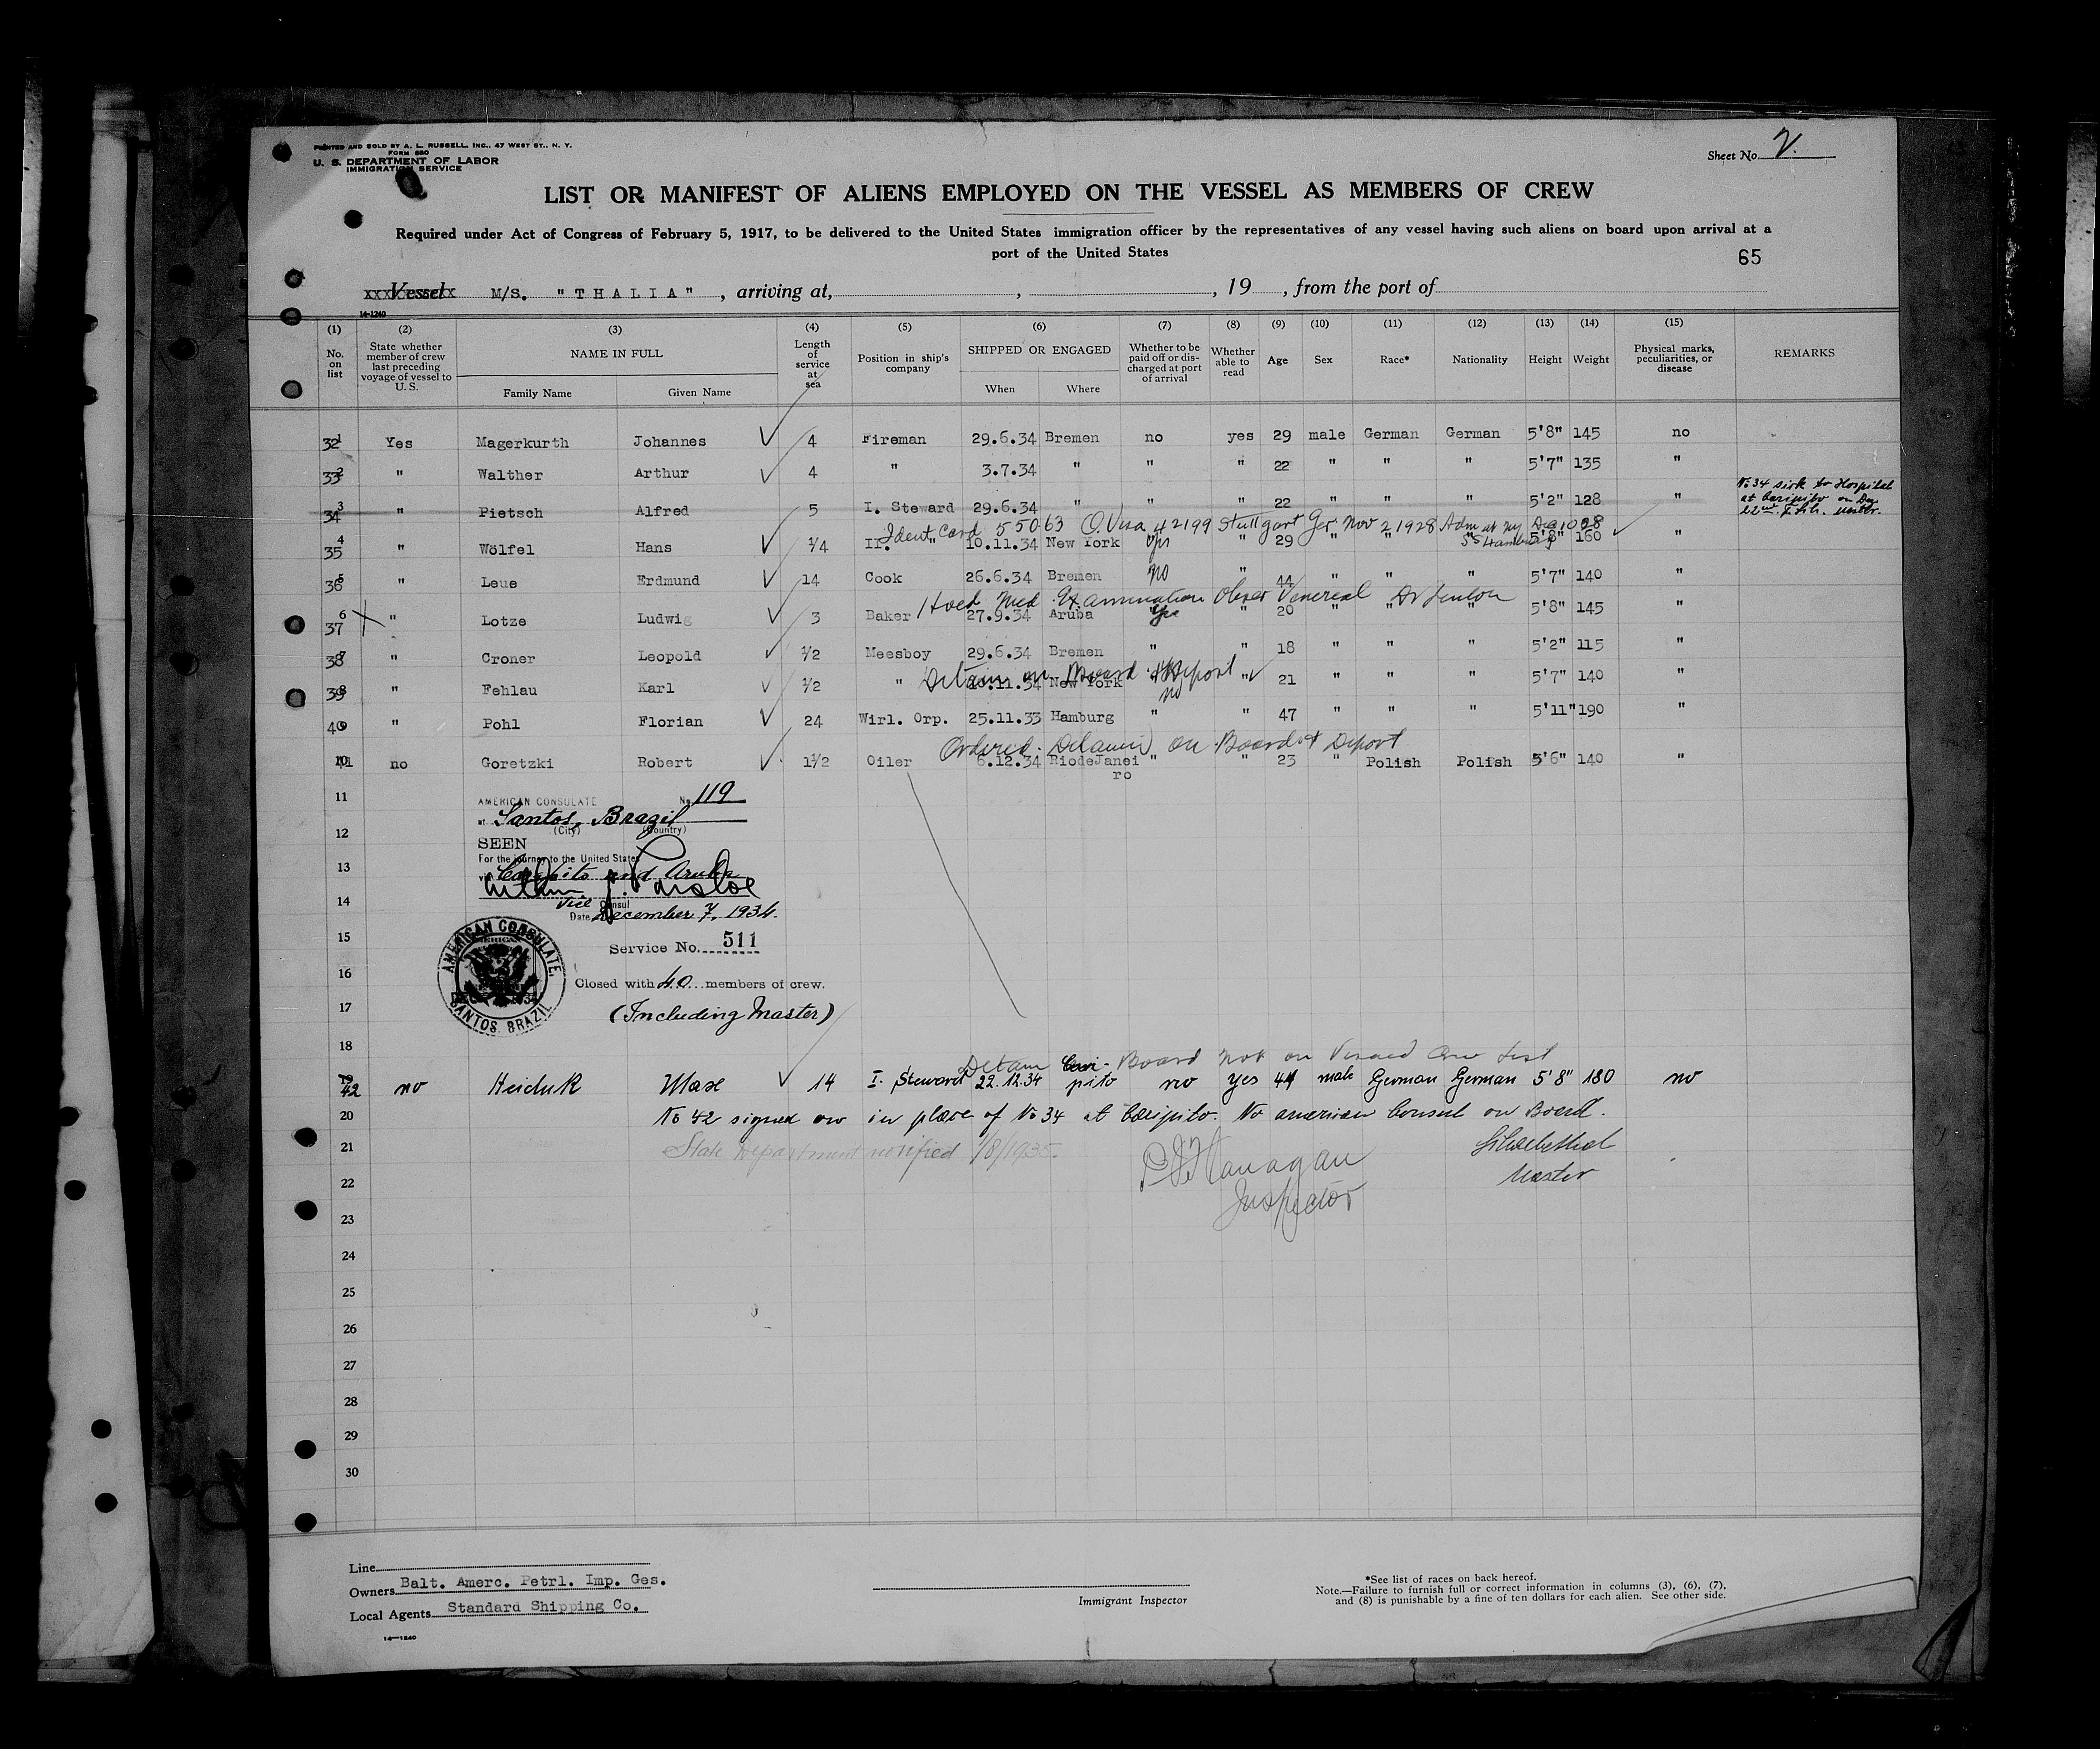 PRINTED AND SOLD BY A. L. RUSSELL, INC., 47 WEST ST., N. Y.
FORM 680
U. S. DEPARTMENT OF LABOR
IMMIGRATION SERVICE
Sheet No. 2.
LIST OR MANIFEST OF ALIENS EMPLOYED ON THE VESSEL AS MEMBERS OF CREW
Required under Act of Congress of February 5, 1917, to be delivered to the United States immigration officer by the representatives of any vessel having such aliens on board upon arrival at a
port of the United States
65
Vessel M/S. "THALIA", arriving at, , , 19 , from the port of
14-1240
(1) (2) (3) (4) (5) (6) (7) (8) (9) (10) (11) (12) (13) (14) (15)
No. on list State whether member of crew last preceding voyage of vessel to U. S. NAME IN FULL Family Name Given Name Length of service at sea Position in ship's company SHIPPED OR ENGAGED When Where Whether to be paid off or discharged at port of arrival Whether able to read Age Sex Race* Nationality Height Weight Physical marks, peculiarities, or disease REMARKS
32 1 Yes Magerkurth Johannes 4 Fireman 29.6.34 Bremen no yes 29 male German German 5'8" 145 no
33 2 " Walther Arthur 4 " 3.7.34 " " " 22 " " " 5'7" 135 "
No 34 sick to Hospital
at Caripito on Dec
22nd.
34 3 " Pietsch Alfred 5 I. Steward 29.6.34 " " " 22 " " " 5'2" 128 "
Ident Card 55063 Q. Visa 42199 Stuttgart Ger. Nov 2 1928 Adm at NY Dec 10 28
SS Hamburg
35 4 " Wölfel Hans 1/4 II. " 10.11.34 New York yes " 29 " " " 5'8" 160 "
36 5 " Leue Erdmund 14 Cook 26.6.34 Bremen no " 44 " " " 5'7" 140 "
Hold Med Examination Obser Venereal Dr Fenton
37 6 " Lotze Ludwig 3 Baker 27.9.34 Aruba yes " 20 " " " 5'8" 145 "
38 7 " Croner Leopold 1/2 Messboy 29.6.34 Bremen " " 18 " " " 5'2" 115 "
Detain on Board & Deport
39 8 " Fehlau Karl 1/2 " 10.11.34 New York no " 21 " " " 5'7" 140 "
40 9 " Pohl Florian 24 Wirl. Orp. 25.11.33 Hamburg " " 47 " " " 5'11" 190 "
Ordered Detained on Board & Deport
41 10 no Goretzki Robert 1½ Oiler 6.12.34 RiodeJaneiro " " 23 " Polish Polish 5'6" 140 "
11
AMERICAN CONSULATE No 119
at Santos, Brazil
(City) (Country)
12
SEEN
For the journey to the United States
13
via Caripito and Aruba
14
Vice Consul
Date December 7, 1934.
15
Service No. 511
AMERICAN CONSULATE, SANTOS, BRAZIL
16
Closed with 40 members of crew.
17
(Including Master)
18
Detain on Board Not on Visaed Crew List
19 42 no Heiduk Max 14 I. Steward 22.12.34 Caripito no yes 44 male German German 5'8" 180 no
20 No 42 signed on in place of No 34 at Caripito. No american Consul on Board.
21 State Department notified 1/8/1935.
P J Flanagan
Inspector
Master
22
23
24
25
26
27
28
29
30
Line
Owners Balt. Amerc. Petrl. Imp. Ges.
Local Agents Standard Shipping Co.
14-1240
Immigrant Inspector
*See list of races on back hereof.
Note.—Failure to furnish full or correct information in columns (3), (6), (7),
and (8) is punishable by a fine of ten dollars for each alien. See other side.